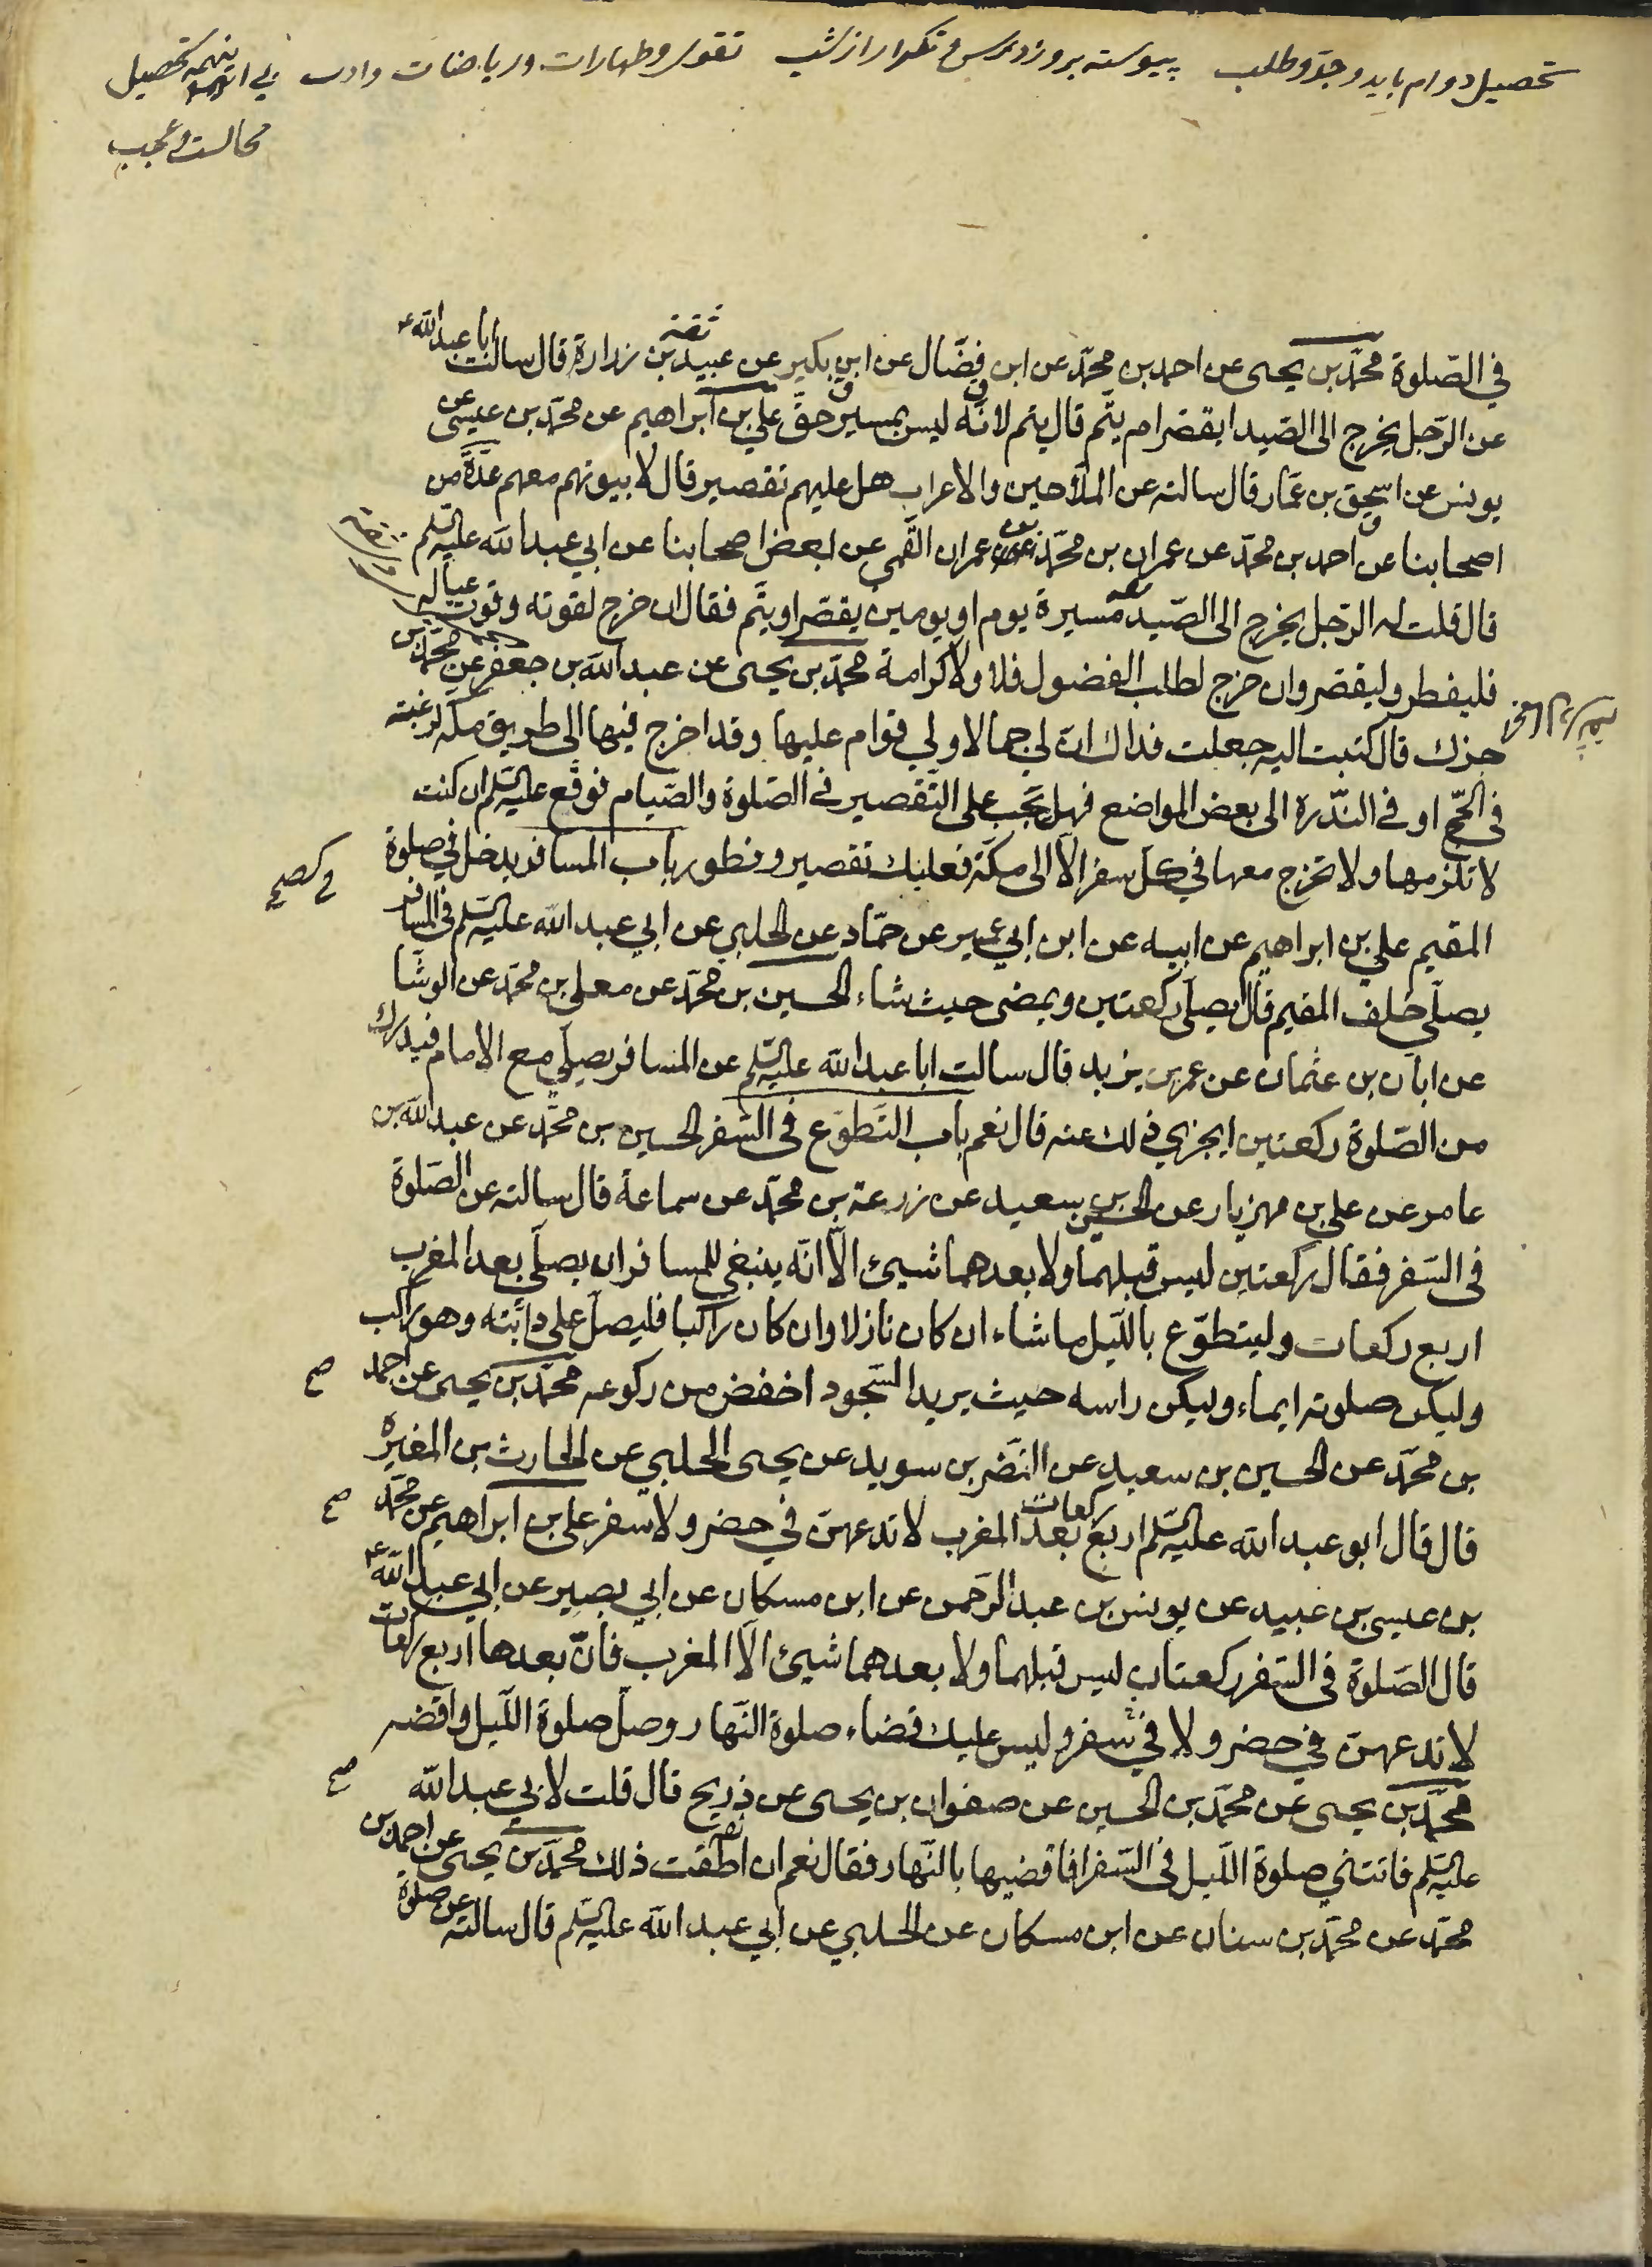 تحصيل دوام بايد وجدّ وطلب پيوسته بروز درس و تكرار از شب تقوى وطهارات ورياضات وادب بى اينهمه تحصيل
محالست وعجب
فى الصّلوة محمّد بن يحيى عن احمد بن محمّد عن ابن فضّال عن ابن بكير عن عبيد بن زرارة قال سالت ابا عبدالله ع
عن الرّجل يخرج الى الصّيد ايقصّر ام يتّم قال يتم لانّه ليس بمسير حقّ علي بن ابراهيم عن محمّد بن عيسى عن
يونس عن اسحق بن عمّار قال سالته عن الملّاحين والاعراب هل عليهم تقصير قال لا بيوتهم معهم عدّة من
اصحابنا عن احمد بن محمّد عن عمران بن محمّد بن عمران القمي عن بعض اصحابنا عن ابي عبدالله عليه السّلم
قال قلت له الرّجل يخرج الى الصّيد مسيرة يوم او يومين يقصّر او يتّم فقال ان خرج لقوته وقوت عياله
فليفطر وليقصّر وان خرج لطلب الفضول فلا ولا كرامة محمّد بن يحيى عن عبدالله بن جعفر عن محمّد بن
جزك قال كتبت اليه جعلت فداك ان لي جمالا ولي قوام عليها وقد اخرج فيها الى طريق مكّه لرغبته
فى الحجّ او فى النّدرة الى بعض المواضع فهل يجب على التّقصير فى الصّلوة والصّيام فوقّع عليه السّلم ان كنت
لا تلزمها ولا تخرج معها في كل سفر الّا الى مكّة فعليك تقصير وفطور باب المسافر يدخل في صلوة
المقيم علي بن ابراهيم عن ابيه عن ابن ابي عمير عن حمّاد عن الحلبي عن ابي عبدالله عليه السّلم فى المسافر
يصلّي خلف المقيم قال يصلّى ركعتين ويمضى حيث شاء الحسين بن محمّد عن معلى بن محمّد عن الوشّا
عن ابان بن عثمان عن عمر بن يزيد قال سالت ابا عبدالله عليه السّلم عن المسافر يصلّي مع الامام فيدرك
من الصّلوة ركعتين ايجزي ذلك عنه قال نعم باب التّطوّع فى السّفر الحسين بن محمّد عن عبدالله بن
عامر عن علي بن مهزيار عن الحسين بن سعيد عن زرعة بن محمّد عن سماعة قال سالته عن الصّلوة
فى السّفر فقال ركعتين ليس قبلهما ولا بعدهما شيئ الّا انّه ينبغي للمسافر ان يصلّى بعد المغرب
اربع ركعات وليتطوّع باللّيل ما شاء ان كان نازلا وان كان راكبا فليصلّ على دابّته وهو راكب
وليكن صلوته ايماء وليكن راسه حيث يريد السّجود اخفض من ركوعه محمّد بن يحيى عن احمد
صح
بن محمّد عن الحسين بن سعيد عن النّضر بن سويد عن يحيى الحلبي عن الحارث بن المغيرة
قال قال ابو عبدالله عليه السّلم اربع ركعات بعد المغرب لا تدعهنّ في حضر ولا سفر علي بن ابراهيم عن محمّد
صح
بن عيسى بن عبيد عن يونس بن عبدالرّحمن عن ابن مسكان عن ابي بصير عن ابي عبدالله ع
قال الصّلوة فى السّفر ركعتان ليس قبلهما ولا بعدهما شيئ الّا المغرب فانّ بعدها اربع ركعات
لا تدعهنّ في حضر ولا في سفر وليس عليك قضاء صلوة النّهار وصلّ صلوة اللّيل واقضه
محمّد بن يحيى عن محمّد بن الحسين عن صفوان بن يحيى عن ذريح قال قلت لابي عبدالله
صح
عليه السّلم فاتتني صلوة اللّيل فى السّفر افاقضيها بالنّهار فقال نعم ان اطقت ذلك محمّد بن يحيى عن احمد بن
محمّد عن محمّد بن سنان عن ابن مسكان عن الحلبي عن ابي عبدالله عليه السّلم قال سالته عن صلوة